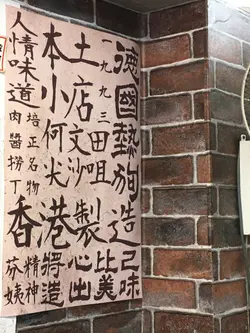 德國熱狗
一九九三
本土
小店
何文田
尖沙咀
人情
味道
培正名物
肉醬撈丁
香港製造
芬姨
精神
將心比己
造出美味